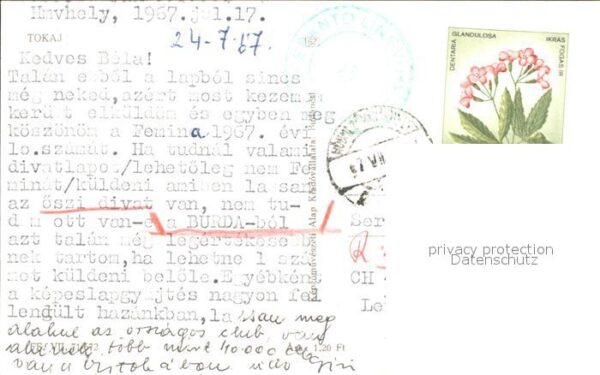 Hmvhely, 1967. jul.17.
TOKAJ
24-7-67
Kedves Béla!
Talán ebből a lapból sincs
még neked, azért most kezem
kerül elküldöm és egyben meg
köszönöm a Femina 1967. évi
lo.számát. Ha tudnál valami
divatlapot/lehetőleg nem Fe
minát/küldeni amiben lassan
az őszi divat van, nem tu-
dom ott van-e a BURDA-ból
azt talán még legértékesebb
nek tartom, ha lehetne 1 szá
mot küldeni belőle. Egyébként
a képeslapgyüjtés nagyon fel
lendült hazánkban, lassan meg
alakul az országos club,
több mint 40.000
van
1.20 Ft
Képzőművészeti Alap Kiadóvállalata, Budapest
DENTARIA GLANDULOSA
IKRÁS FOGAS ÍR
Ser
CH
Le
privacy protection
Datenschutz